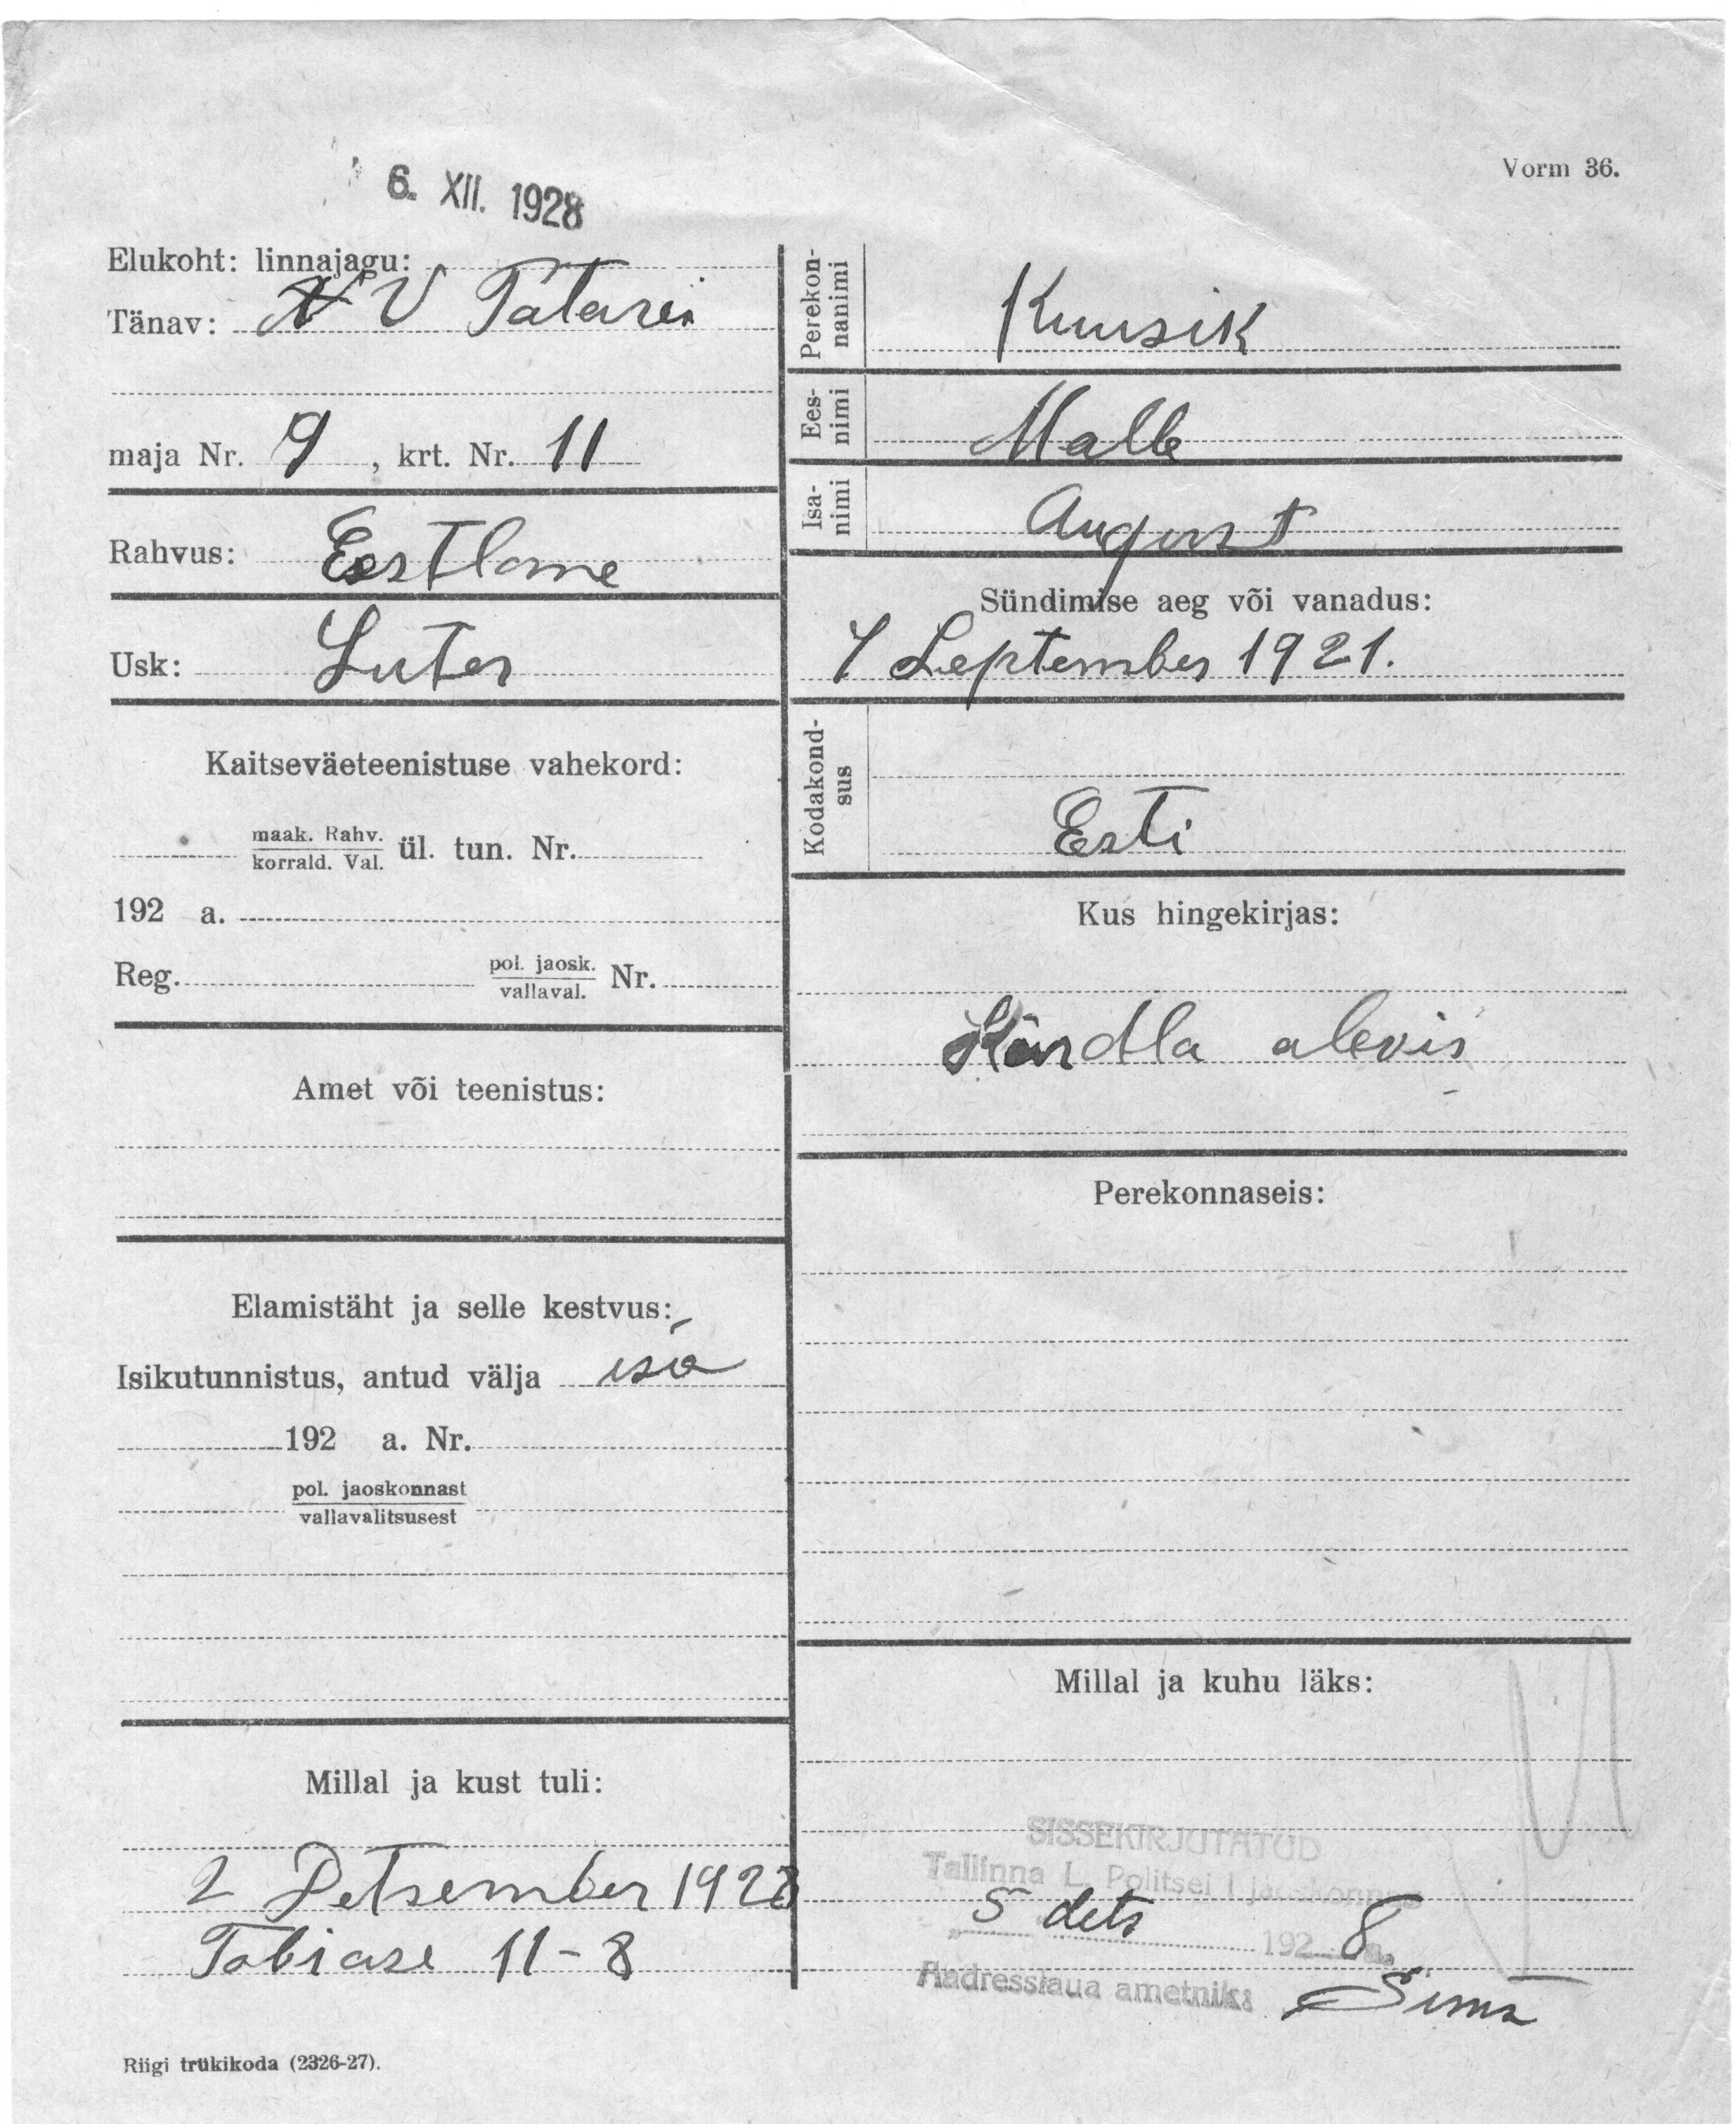 6. XII. 1928
Vorm 36.
Elukoht: linnajagu:
Tänav: V Tatari
maja Nr. 9, krt. Nr. 11
Rahvus: Eestlane
Usk: Luter
Kaitseväeteenistuse vahekord:
maak. Rahv. korrald. Val. ül. tun. Nr.
192 a.
Reg. pol. jaosk. vallaval. Nr.
Amet või teenistus:
Elamistäht ja selle kestvus:
Isikutunnistus, antud välja isa
192 a. Nr.
pol. jaoskonnast
vallavalitsusest
Millal ja kust tuli:
2 Detsember 1928
Tobiase 11-8
Riigi trükikoda (2326-27).
Perekonnanimi Kuusik
Eesnimi Malle
Isanimi August
Sündimise aeg või vanadus:
7 September 1921.
Kodakondsus
Esti
Kus hingekirjas:
Kärdla alevis
Perekonnaseis:
Millal ja kuhu läks:
SISSEKIRJUTATUD
Tallinna L. Politsei I jaoskonnas
5 dets 1928 a.
Aadresslaua ametnik: